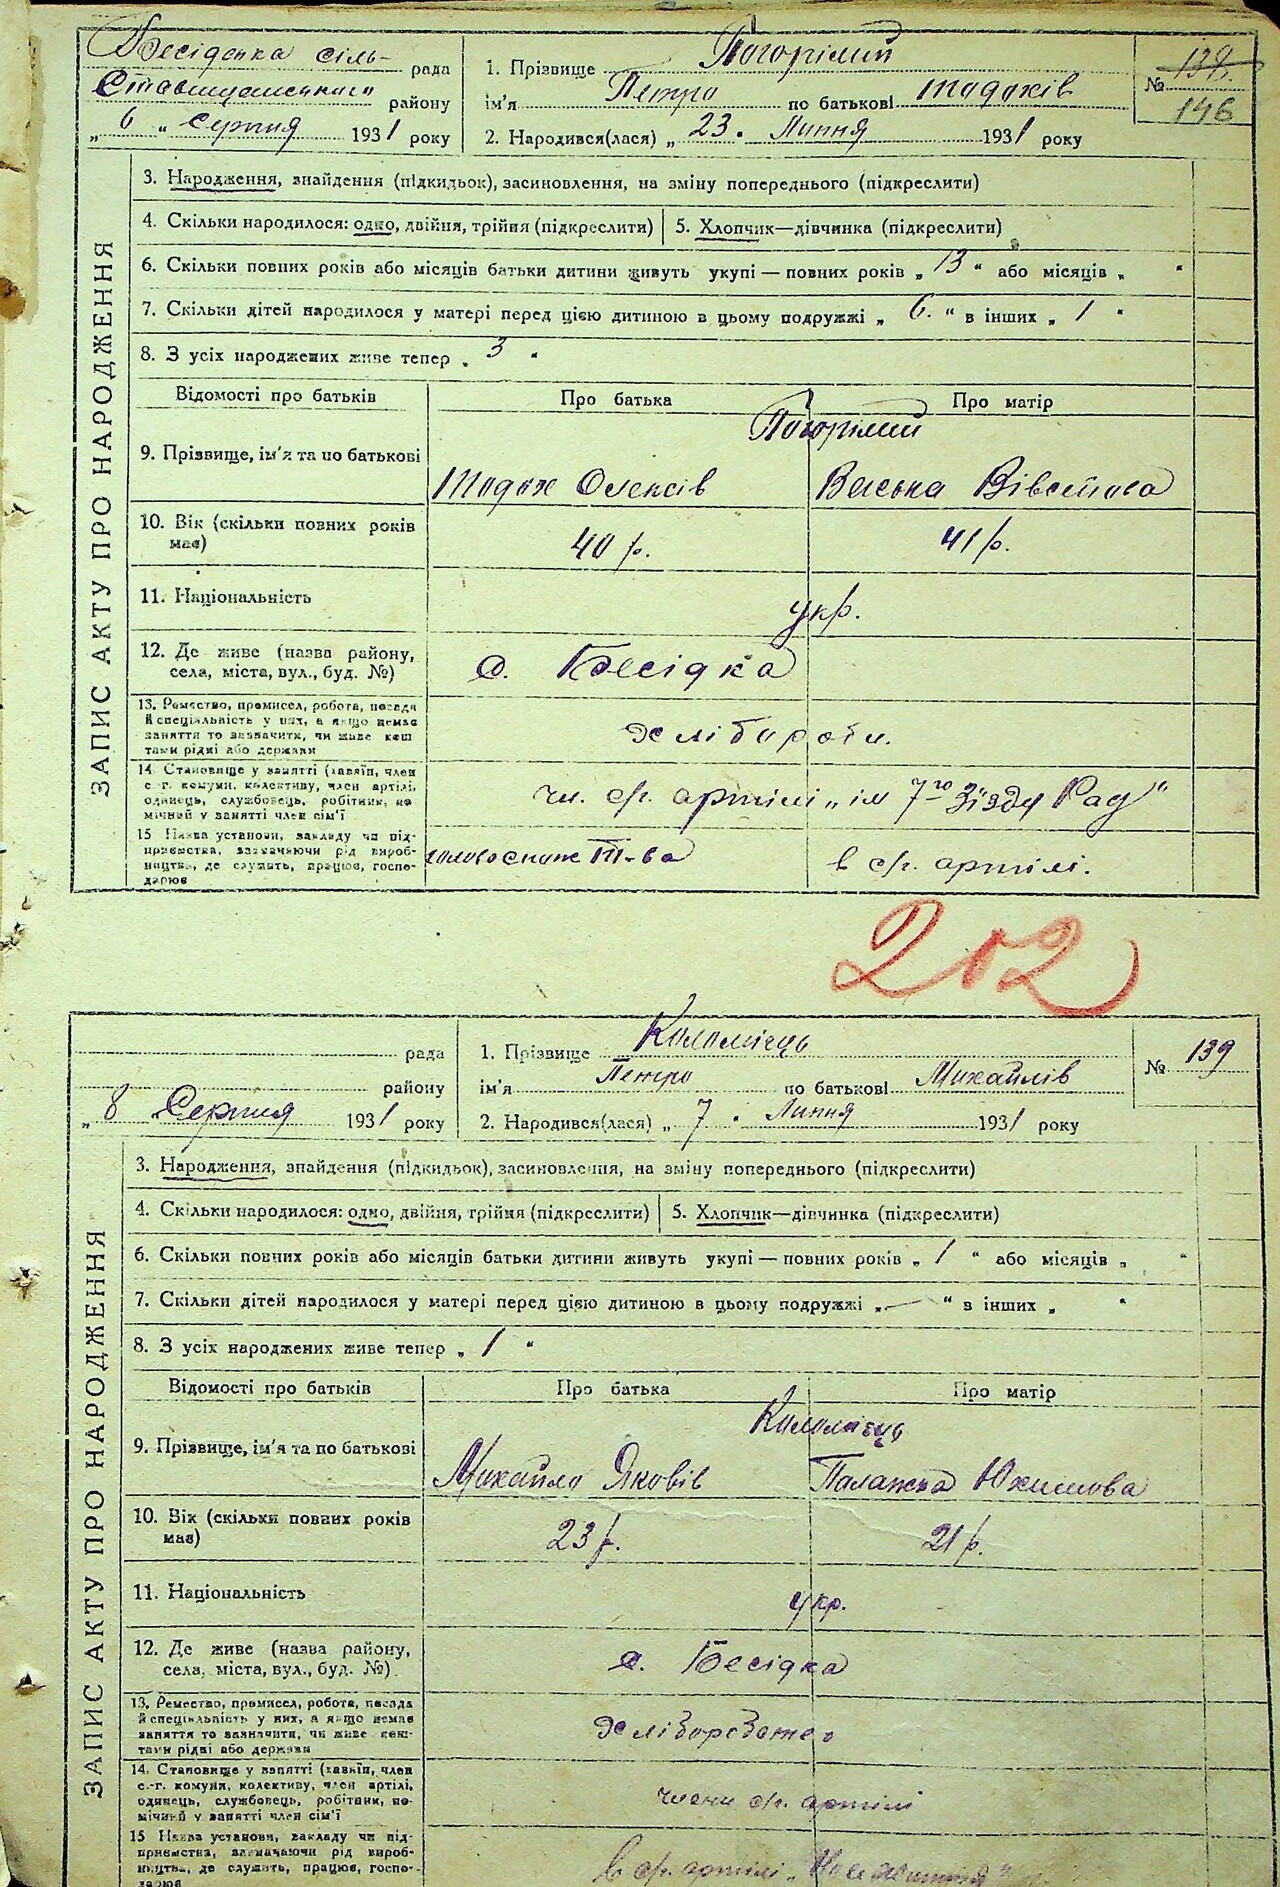 Бесідська сіль- рада
Ставищанського району
„ 6 „ Серпня 1931 року
1. Прізвище Погорілий
ім'я Петро по батькові Тодохів
2. Народився(лася) „ 23 „ Липня 1931 року
№ 138.
146
ЗАПИС АКТУ ПРО НАРОДЖЕННЯ
3. Народження, знайдення (підкидьок), засиновлення, на зміну попереднього (підкреслити)
4. Скільки народилося: одно, двійня, трійня (підкреслити) 5. Хлопчик—дівчинка (підкреслити)
6. Скільки повних років або місяців батьки дитини живуть укупі — повних років „ 13 “ або місяців „ “
7. Скільки дітей народилося у матері перед цією дитиною в цьому подружжі „ 6. “ в інших „ 1 “
8. З усіх народжених живе тепер „ 3 “
Відомості про батьків Про батька Про матір
9. Прізвище, ім'я та по батькові
Погорілий
Тодох Олексів Васька
10. Вік (скільки повних років має) 40 р. 41 р.
11. Національність укр.
12. Де живе (назва району, села, міста, вул., буд. №) с. Бесідка
13. Ремество, промисел, робота, посада
й спеціяльність у них, а якщо немає
заняття то зазначити, чи живе кош
тами рідні або держави
хлібороби.
14. Становище у занятті (хазяїн, член
с.-г. комуни, колективу, член артілі,
одинець, службовець, робітник, по
мічний у занятті член сім'ї
чл. с/г. артілі „ім 7го Зізду Рад"
15 Назва установи, закладу чи під-
приємства, зазначаючи рід вироб-
ництва, де служить, працює, госпо-
дарює
в с/г. артілі.
202
рада
району
„ 8 Серпня 1931 року
1. Прізвище Коломієць
ім'я Петро по батькові Михайлів
2. Народився(лася) „ 7 „ Липня 1931 року
№ 139
ЗАПИС АКТУ ПРО НАРОДЖЕННЯ
3. Народження, знайдення (підкидьок), засиновлення, на зміну попереднього (підкреслити)
4. Скільки народилося: одно, двійня, трійня (підкреслити) 5. Хлопчик—дівчинка (підкреслити)
6. Скільки повних років або місяців батьки дитини живуть укупі — повних років „ 1 “ або місяців „ “
7. Скільки дітей народилося у матері перед цією дитиною в цьому подружжі „ — “ в інших „ “
8. З усіх народжених живе тепер „ 1 “
Відомості про батьків Про батька Про матір
9. Прізвище, ім'я та по батькові
Коломієць
Михайло Яковів Палажка Юхимова
10. Вік (скільки повних років має) 23 р. 21 р.
11. Національність укр.
12. Де живе (назва району, села, міста, вул., буд. №) с. Бесідка
13. Ремество, промисел, робота, посада
й спеціяльність у них, а якщо немає
заняття то зазначити, чи живе кош-
тами рідні або держави
14. Становище у занятті (хазяїн, член
с.-г. комуни, колективу, член артілі,
одинець, службовець, робітник, по-
мічний у занятті член сім'ї
члени с/г. артілі
15 Назва установи, закладу чи під-
приємства, зазначаючи рід вироб-
ництва, де служить, працює, госпо-
дарює
в с/г. артілі